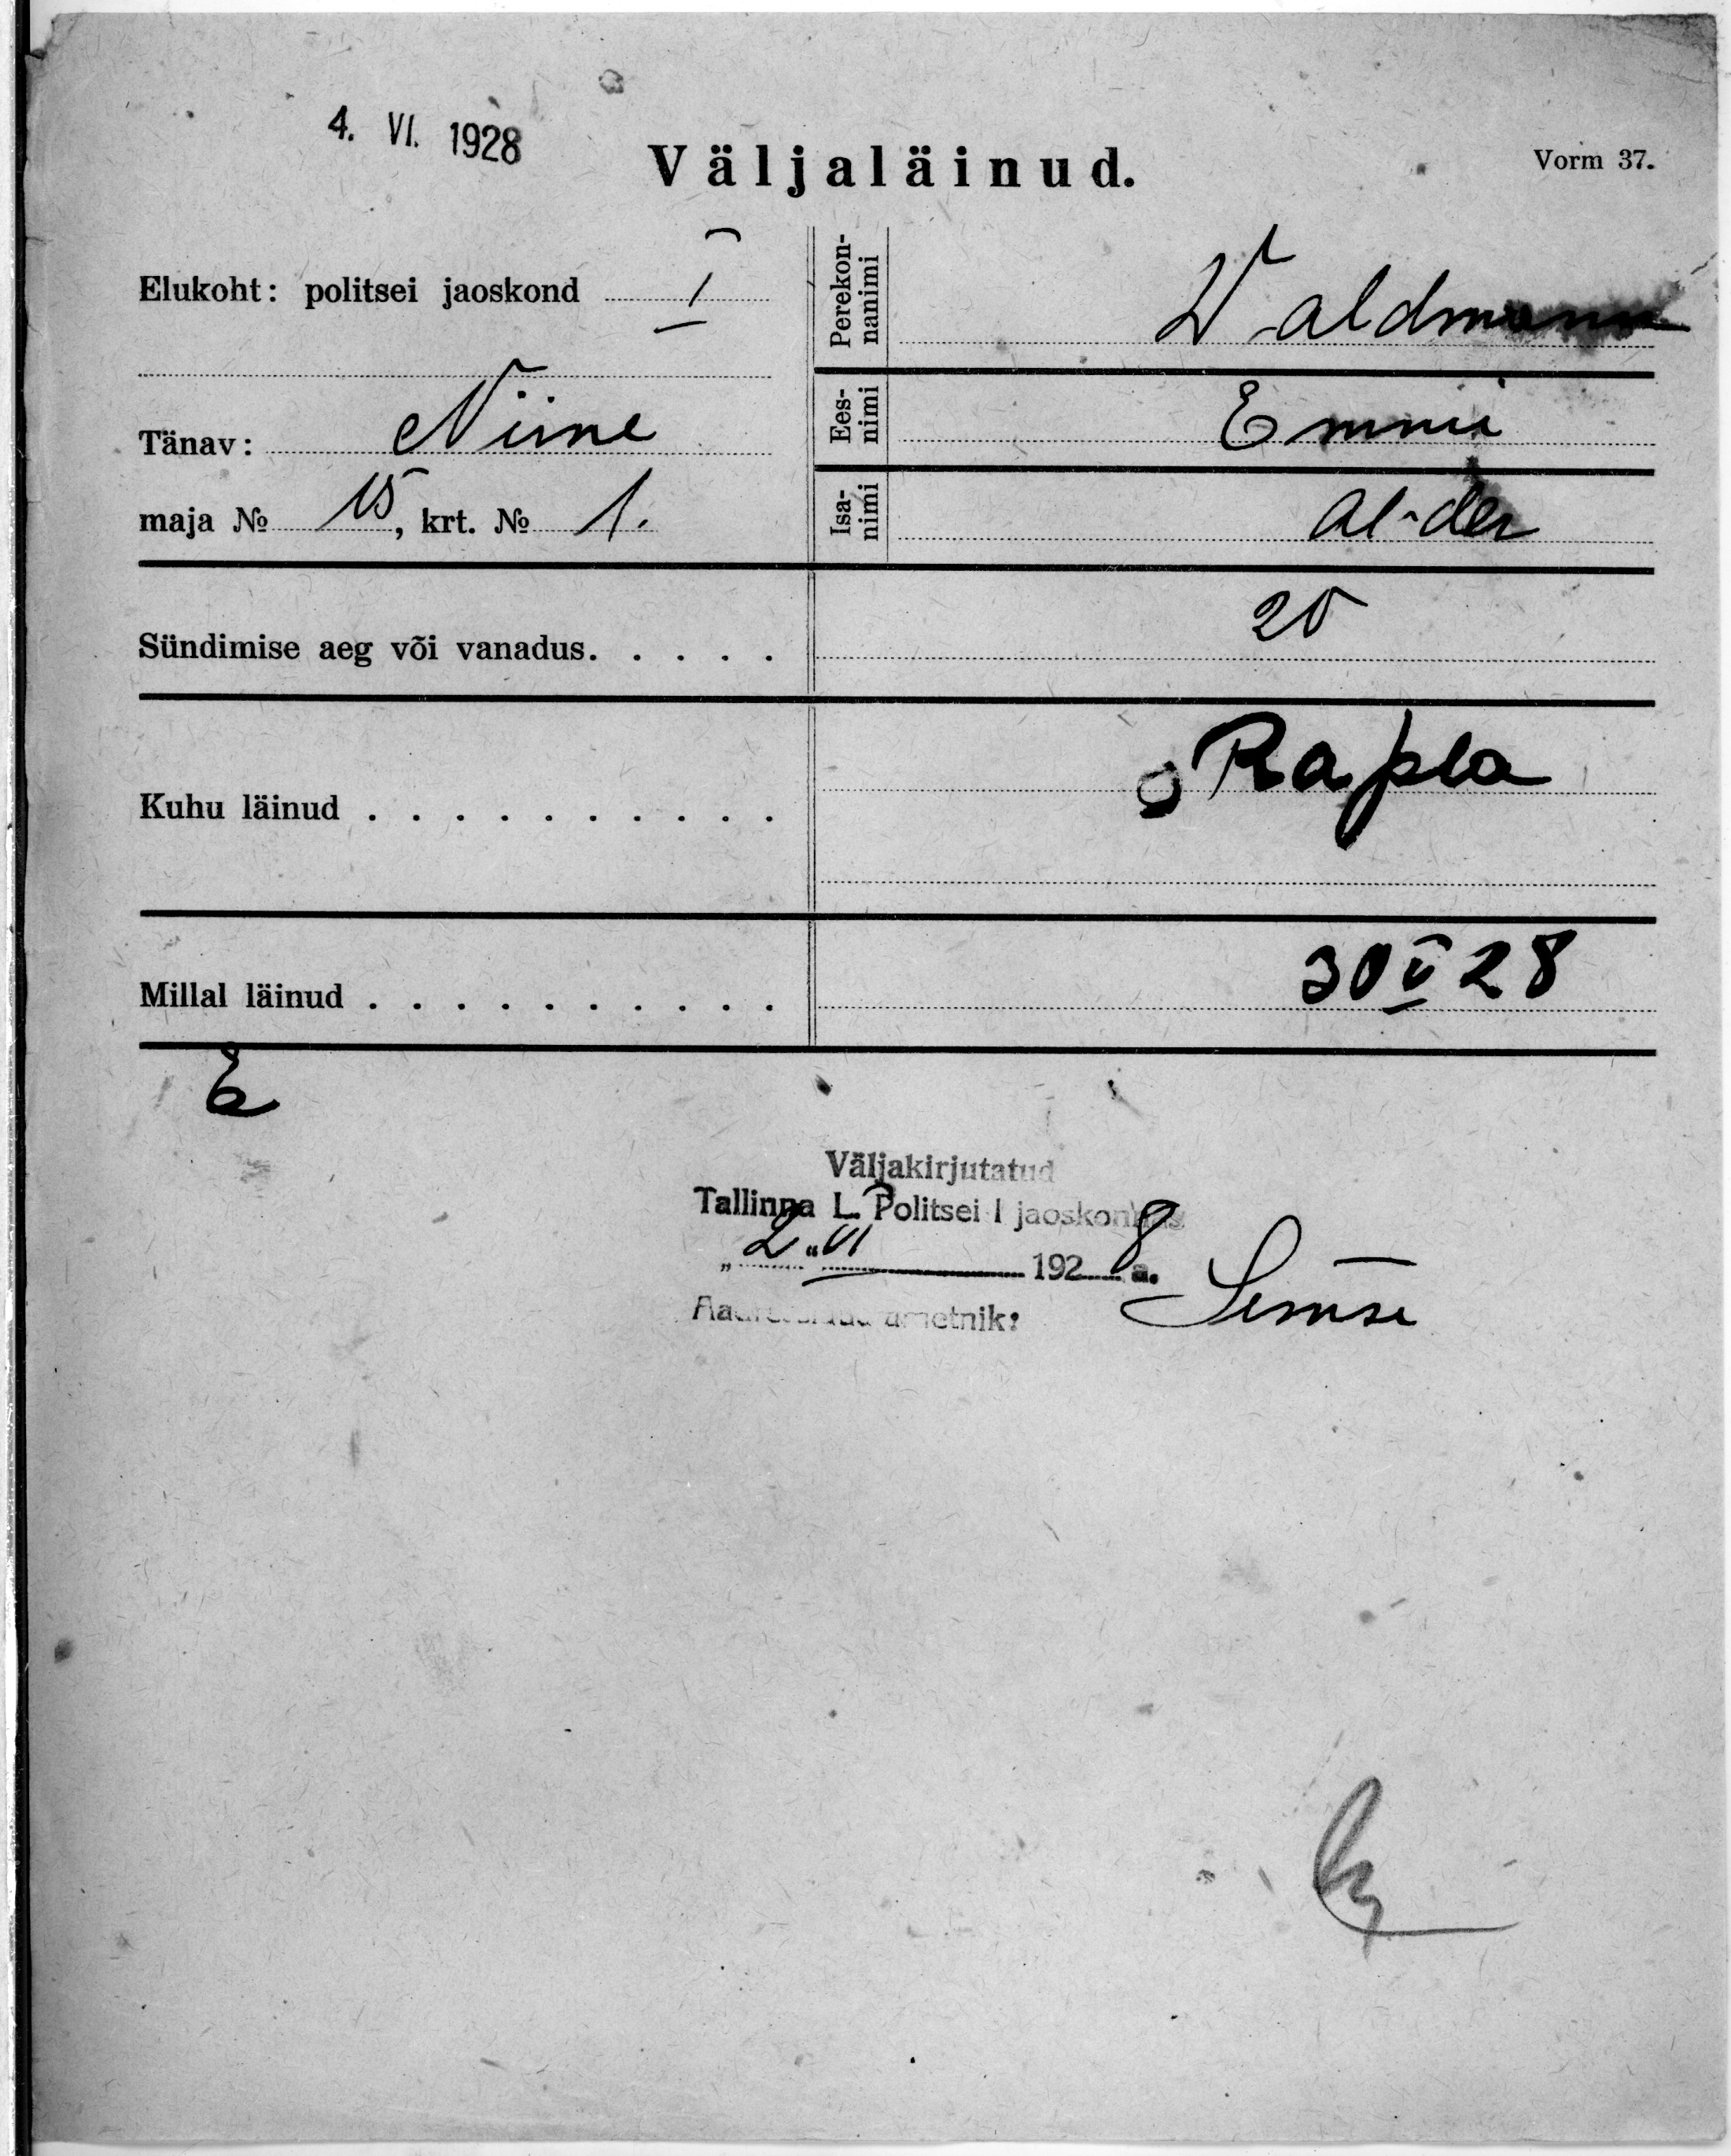 4. VI. 1928
Väljaläinud.
Vorm 37.
Elukoht: politsei jaoskond I
Tänav: Niine
maja № 15, krt. № 1.
Perekon-
nanimi
Waldmann
Ees-
nimi
Emmi
Isa-
nimi
Al-der
Sündimise aeg või vanadus. . . . .
20
Kuhu läinud . . . . . . . . . .
Rapla
Millal läinud . . . . . . . . . .
30 V 28
E
Väljakirjutatud
Tallinna L. Politsei I jaoskonnas
„ 2 " VI 1928 a.
ametnik: